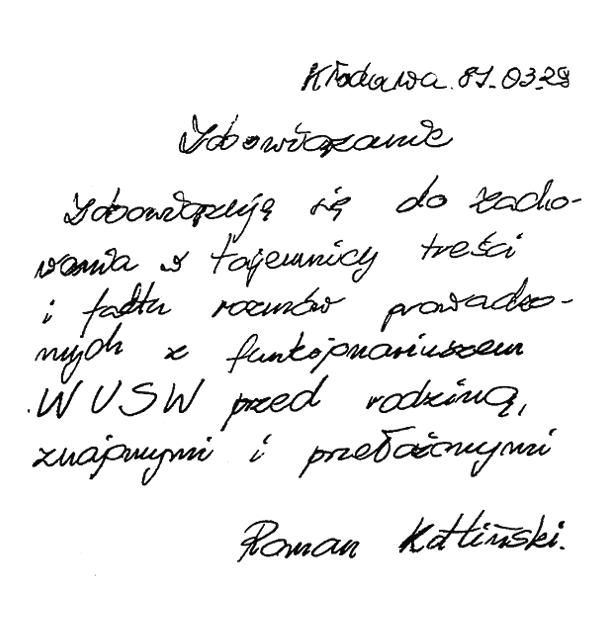 Kłodawa. 87-03-28
Zobowiązanie
Zobowiązuję się do zacho-
wania w tajemnicy treści
i faktu rozmów prowadzo-
nych z funkcjonariuszem
WUSW przed rodziną,
znajomymi i przełożonymi
Roman Kotliński.